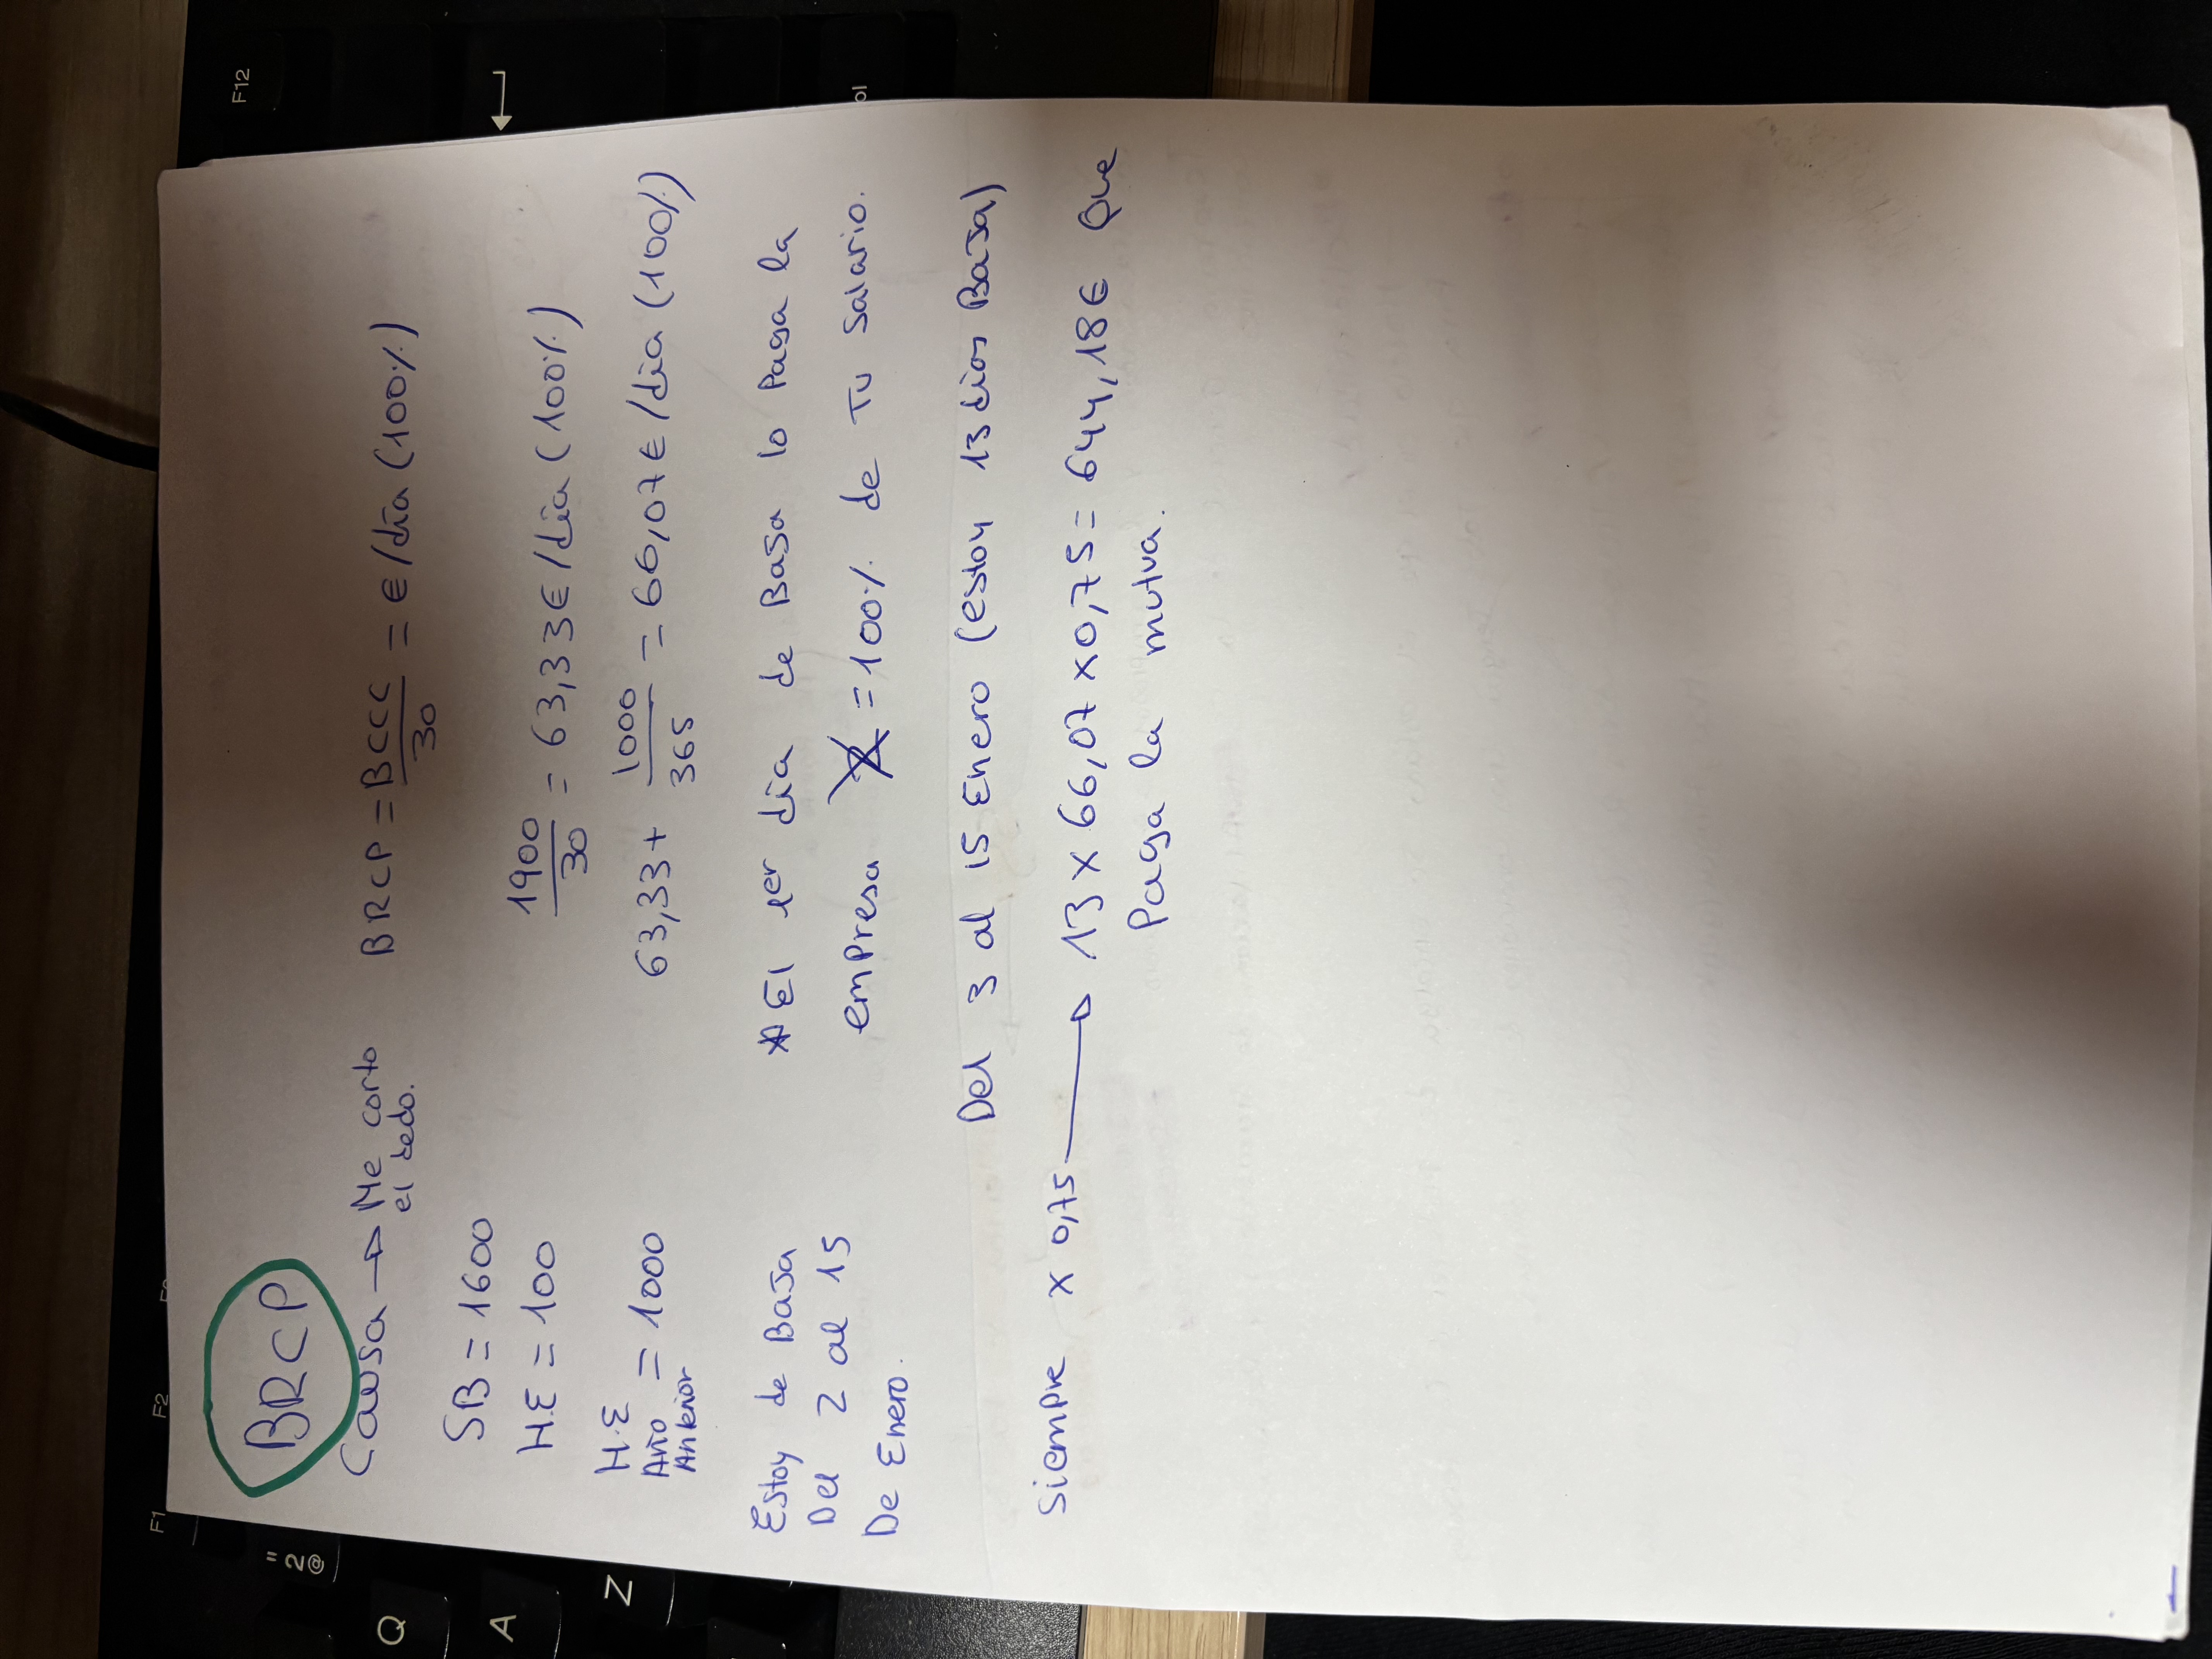 BRCP
Causa → Me corto el dedo.
BRCP = BCCC / 30 = €/día (100%)
SB = 1600
H.E = 100
1900 / 30 = 63,33€/día (100%)
H.E Año Anterior = 1000
63,33 + 1000 / 365 = 66,07€/día (100%)
Estoy de Baja
Del 2 al 15
De Enero.
*El 1er día de Baja lo Paga la
empresa = 100% de Tu Salario.
Del 3 al 15 Enero (estoy 13 días Baja)
Siempre x 0,75 → 13 x 66,07 x 0,75 = 644,18€ Que
Paga la mutua.
F12
F1
F2
"
2@
Q
A
Z